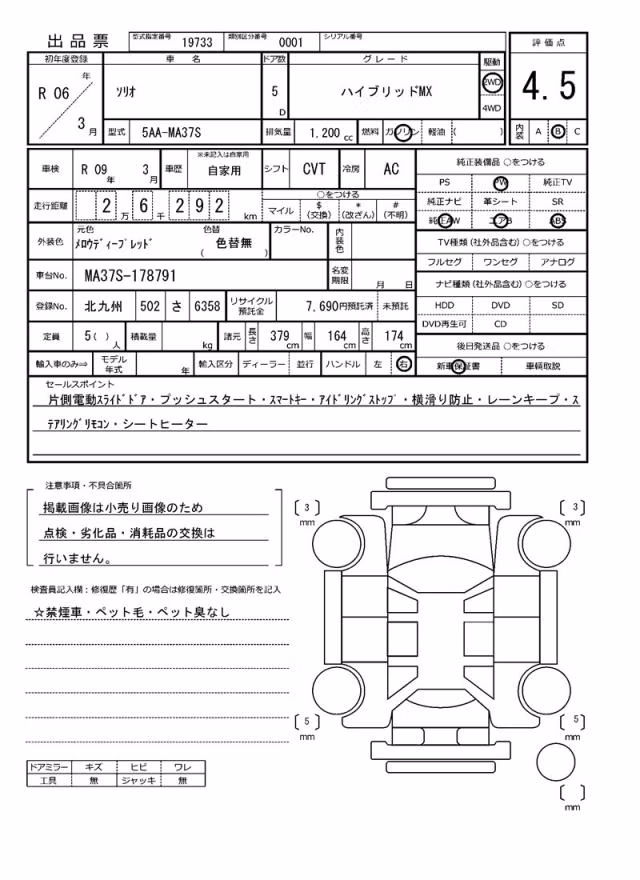 出品票 型式指定番号 19733 類別区分番号 0001 シリアル番号
初年度登録 車名 ドア数 グレード 駆動 評価点
R 06 年 3 月 ソリオ 5 D ハイブリッドMX 2WD 4WD 4.5
型式 5AA-MA37S 排気量 1.200 cc 燃料 ガソリン 軽油 ( ) 内装 A B C
車検 R 09 年 3 月 車歴 ※未記入は自家用 自家用 シフト CVT 冷房 AC
純正装備品 ○をつける
PS PW 純正TV
純正ナビ 革シート SR
純正AW エアB ABS
走行距離 2 万 6 千 2 9 2 km
○をつける
マイル $(交換) *(改ざん) #(不明)
外装色 元色 メロウディープレッド 色替 ( 色替無 ) カラーNo. 内装色
TV種類 (社外品含む) ○をつける
フルセグ ワンセグ アナログ
車台No. MA37S-178791 名変期限 月 日
ナビ種類 (社外品含む) ○をつける
HDD DVD SD
DVD再生可 CD
登録No. 北九州 502 さ 6358 リサイクル預託金 7,690円預託済 未預託
定員 5 ( ) 人 積載量 kg 諸元 長さ 379 cm 幅 164 cm 高さ 174 cm
後日発送品 ○をつける
新車保証書 車輌取説
輸入車のみ⇒ モデル年式 年 輸入区分 ディーラー 並行 ハンドル 左 右
セールスポイント
片側電動スライドドア・プッシュスタート・スマートキー・アイドリングストップ・横滑り防止・レーンキープ・ス
テアリングリモコン・シートヒーター
注意事項・不具合箇所
掲載画像は小売り画像のため
点検・劣化品・消耗品の交換は
行いません。
検査員記入欄：修復歴「有」の場合は修復箇所・交換箇所を記入
☆禁煙車・ペット毛・ペット臭なし
3 mm
3 mm
5 mm
5 mm
mm
ドアミラー キズ ヒビ ワレ
工具 無 ジャッキ 無